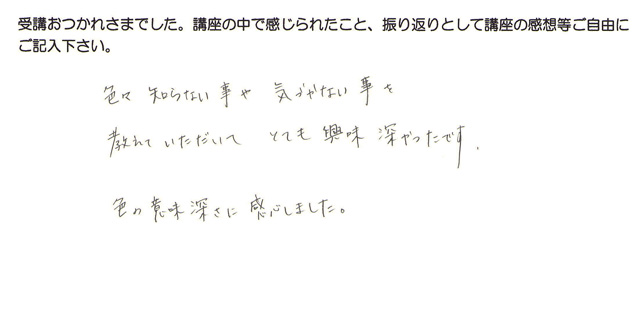 受講おつかれさまでした。講座の中で感じられたこと、振り返りとして講座の感想等ご自由に
ご記入下さい。
色々 知らない事や 気づかない事を
教えていただいて とても 興味 深かったです.
色の意味深さに 感心しました。